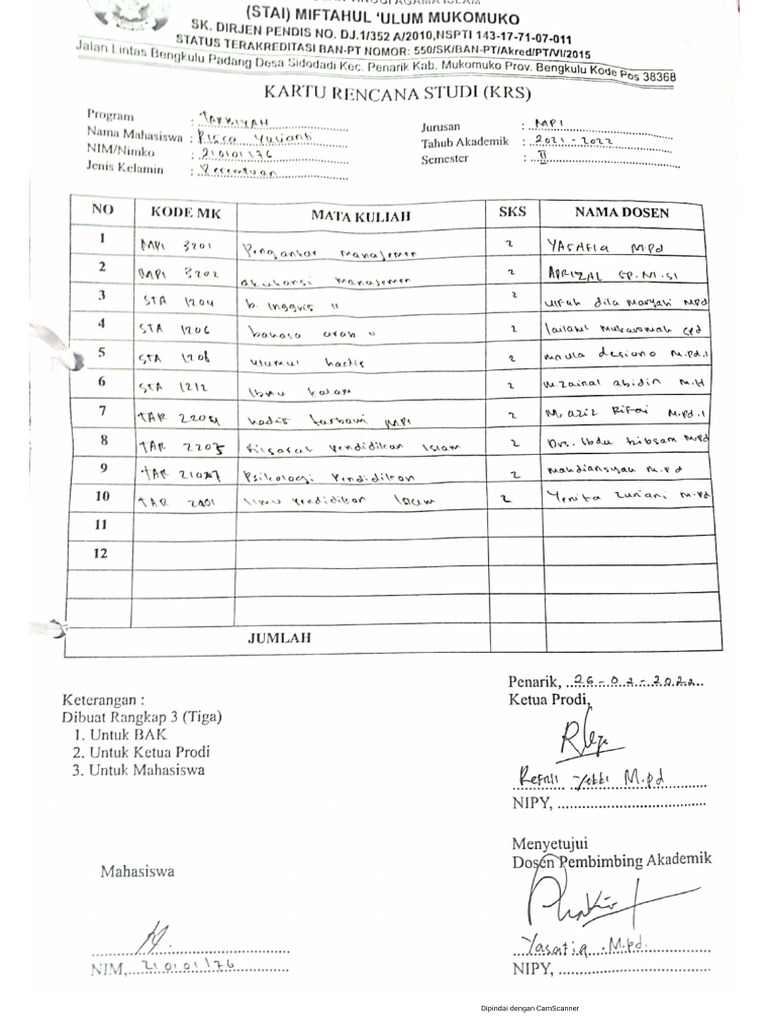 (STAI) MIFTAHUL 'ULUM MUKOMUKO
SK. DIRJEN PENDIS NO. DJ.1/352 A/2010,NSPTI 143-17-71-07-011
STATUS TERAKREDITASI BAN-PT NOMOR: 550/SK/BAN-PT/Akred/PT/VI/2015
Jalan Lintas Bengkulu Padang Desa Sidodadi Kec. Penarik Kab. Mukomuko Prov. Bengkulu Kode Pos 38368
KARTU RENCANA STUDI (KRS)
Program : TARBIYAH
Nama Mahasiswa : Risca Yulianti
NIM/Nimko : 210101176
Jenis Kelamin : Perempuan
Jurusan : MPI
Tahub Akademik : 2021 - 2022
Semester : II
NO KODE MK MATA KULIAH SKS NAMA DOSEN
1 MPI 3201 Pengantar manajemen 2 YASATIA M.Pd
2 MPI 3202 akutansi manajemen 2 APRIZAL SP.M.Si
3 STA 1204 b. Inggris " 2 ulfah dila maryati MPd
4 STA 1206 bahasa arab " 2 lailatul mukaromah SPd
5 STA 1208 ulumul hadis 2 maula desiano M.Pd.I
6 STA 1212 Ilmu kalam 2 M.zainal abidin M.H
7 TAR 2204 hadis tarbawi MPI 2 M.aziz Rifai M.Pd.I
8 TAR 2205 filsafat Pendidikan Islam 2 Drs. Ibdu M.Pd
9 TAR Psikologi Pendidikan 2 Mahdiansyah M.Pd
10 TAR Ilmu Pendidikan Islam 2 Yenita Zuriani M.Pd
11
12
JUMLAH
Penarik, 26-02-2022
Ketua Prodi,
Keterangan :
Dibuat Rangkap 3 (Tiga)
1. Untuk BAK
2. Untuk Ketua Prodi
3. Untuk Mahasiswa
M.pd
NIPY,
Menyetujui
Dosen Pembimbing Akademik
Mahasiswa
Yasatia M.Pd.
NIM, 210101176
NIPY,
Dipindai dengan CamScanner